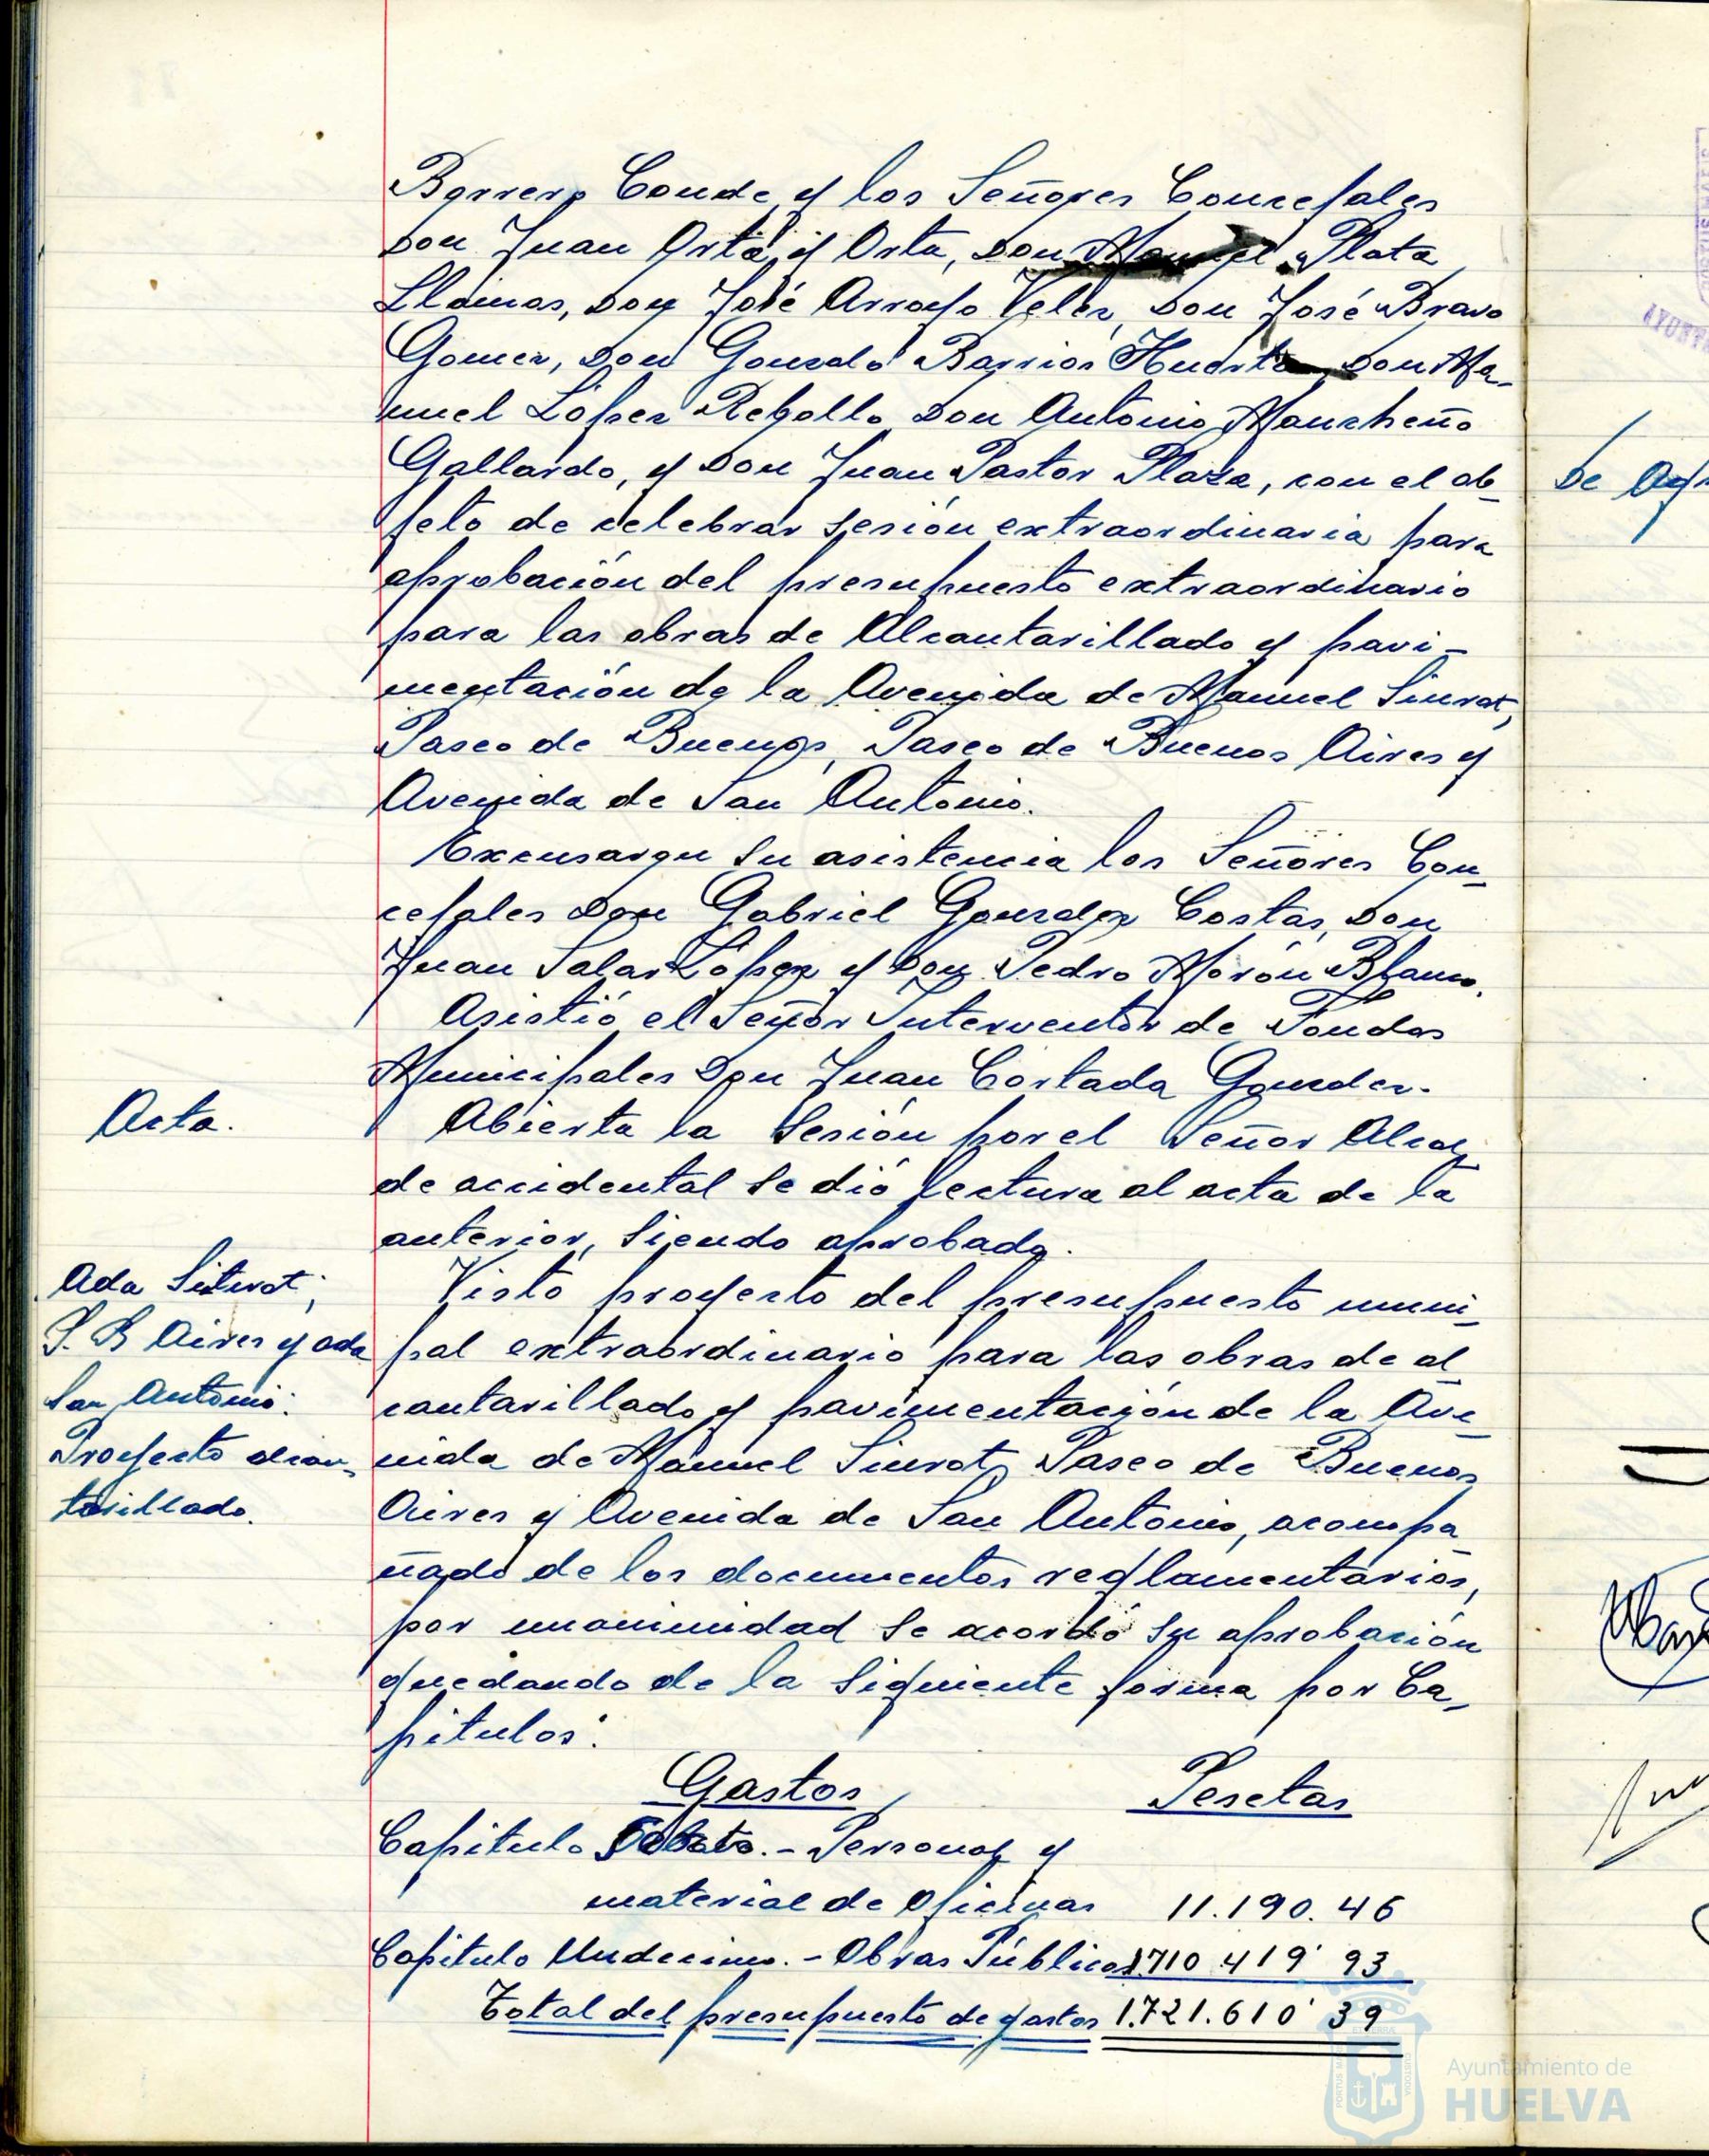 Borrero Conde, y los Señores Concejales
Don Juan Orta y Orta, Don Manuel Plata
Llaimas, Don José Arroyo Velez, Don José Bravo
Gomez, Don Gonzalo Barrios Huerta, Don Ma-
nuel López Rebollo, Don Antonio Mancheño
Gallardo, y Don Juan Pastor Plaza, con el ob-
jeto de celebrar sesión extraordinaria para
aprobación del presupuesto extraordinario
para las obras de Alcantarillado y pavi-
mentación de la Avenida de Manuel Siurot,
Paseo de Buenos, Paseo de Buenos Aires y
Avenida de San Antonio.
Excusaron su asistencia los Señores Con-
cejales Don Gabriel Gonzalez Costas, Don
Juan Salas López y Don Pedro Morón Blanco.
Asistió el Señor Interventor de Fondos
Municipales Don Juan Cortada Gonzalez.
Acta.
Abierta la Sesión por el Señor Alcal-
de accidental se dió lectura al acta de la
anterior, siendo aprobada.
Ada Siurot;
P. B Aires y ada
San Antonio:
Proyecto alcan-
tarillado.
Visto proyecto del presupuesto muni-
pal extraordinario para las obras de al-
cantarillado y pavimentación de la Ave-
nida de Manuel Siurot, Paseo de Buenos
Aires y Avenida de San Antonio, acompa-
ñado de los documentos reglamentarios,
por unanimidad se acordó su aprobación
quedando de la siguiente forma por Ca-
pitulos:
Gastos Pesetas
Capitulo .- Personal y
material de Oficinas 11.190.46
Capitulo Undecimo.- Obras Públicas 1.710.419'93
Total del presupuesto de gastos 1.721.610'39
De
Ayuntamiento de
HUELVA